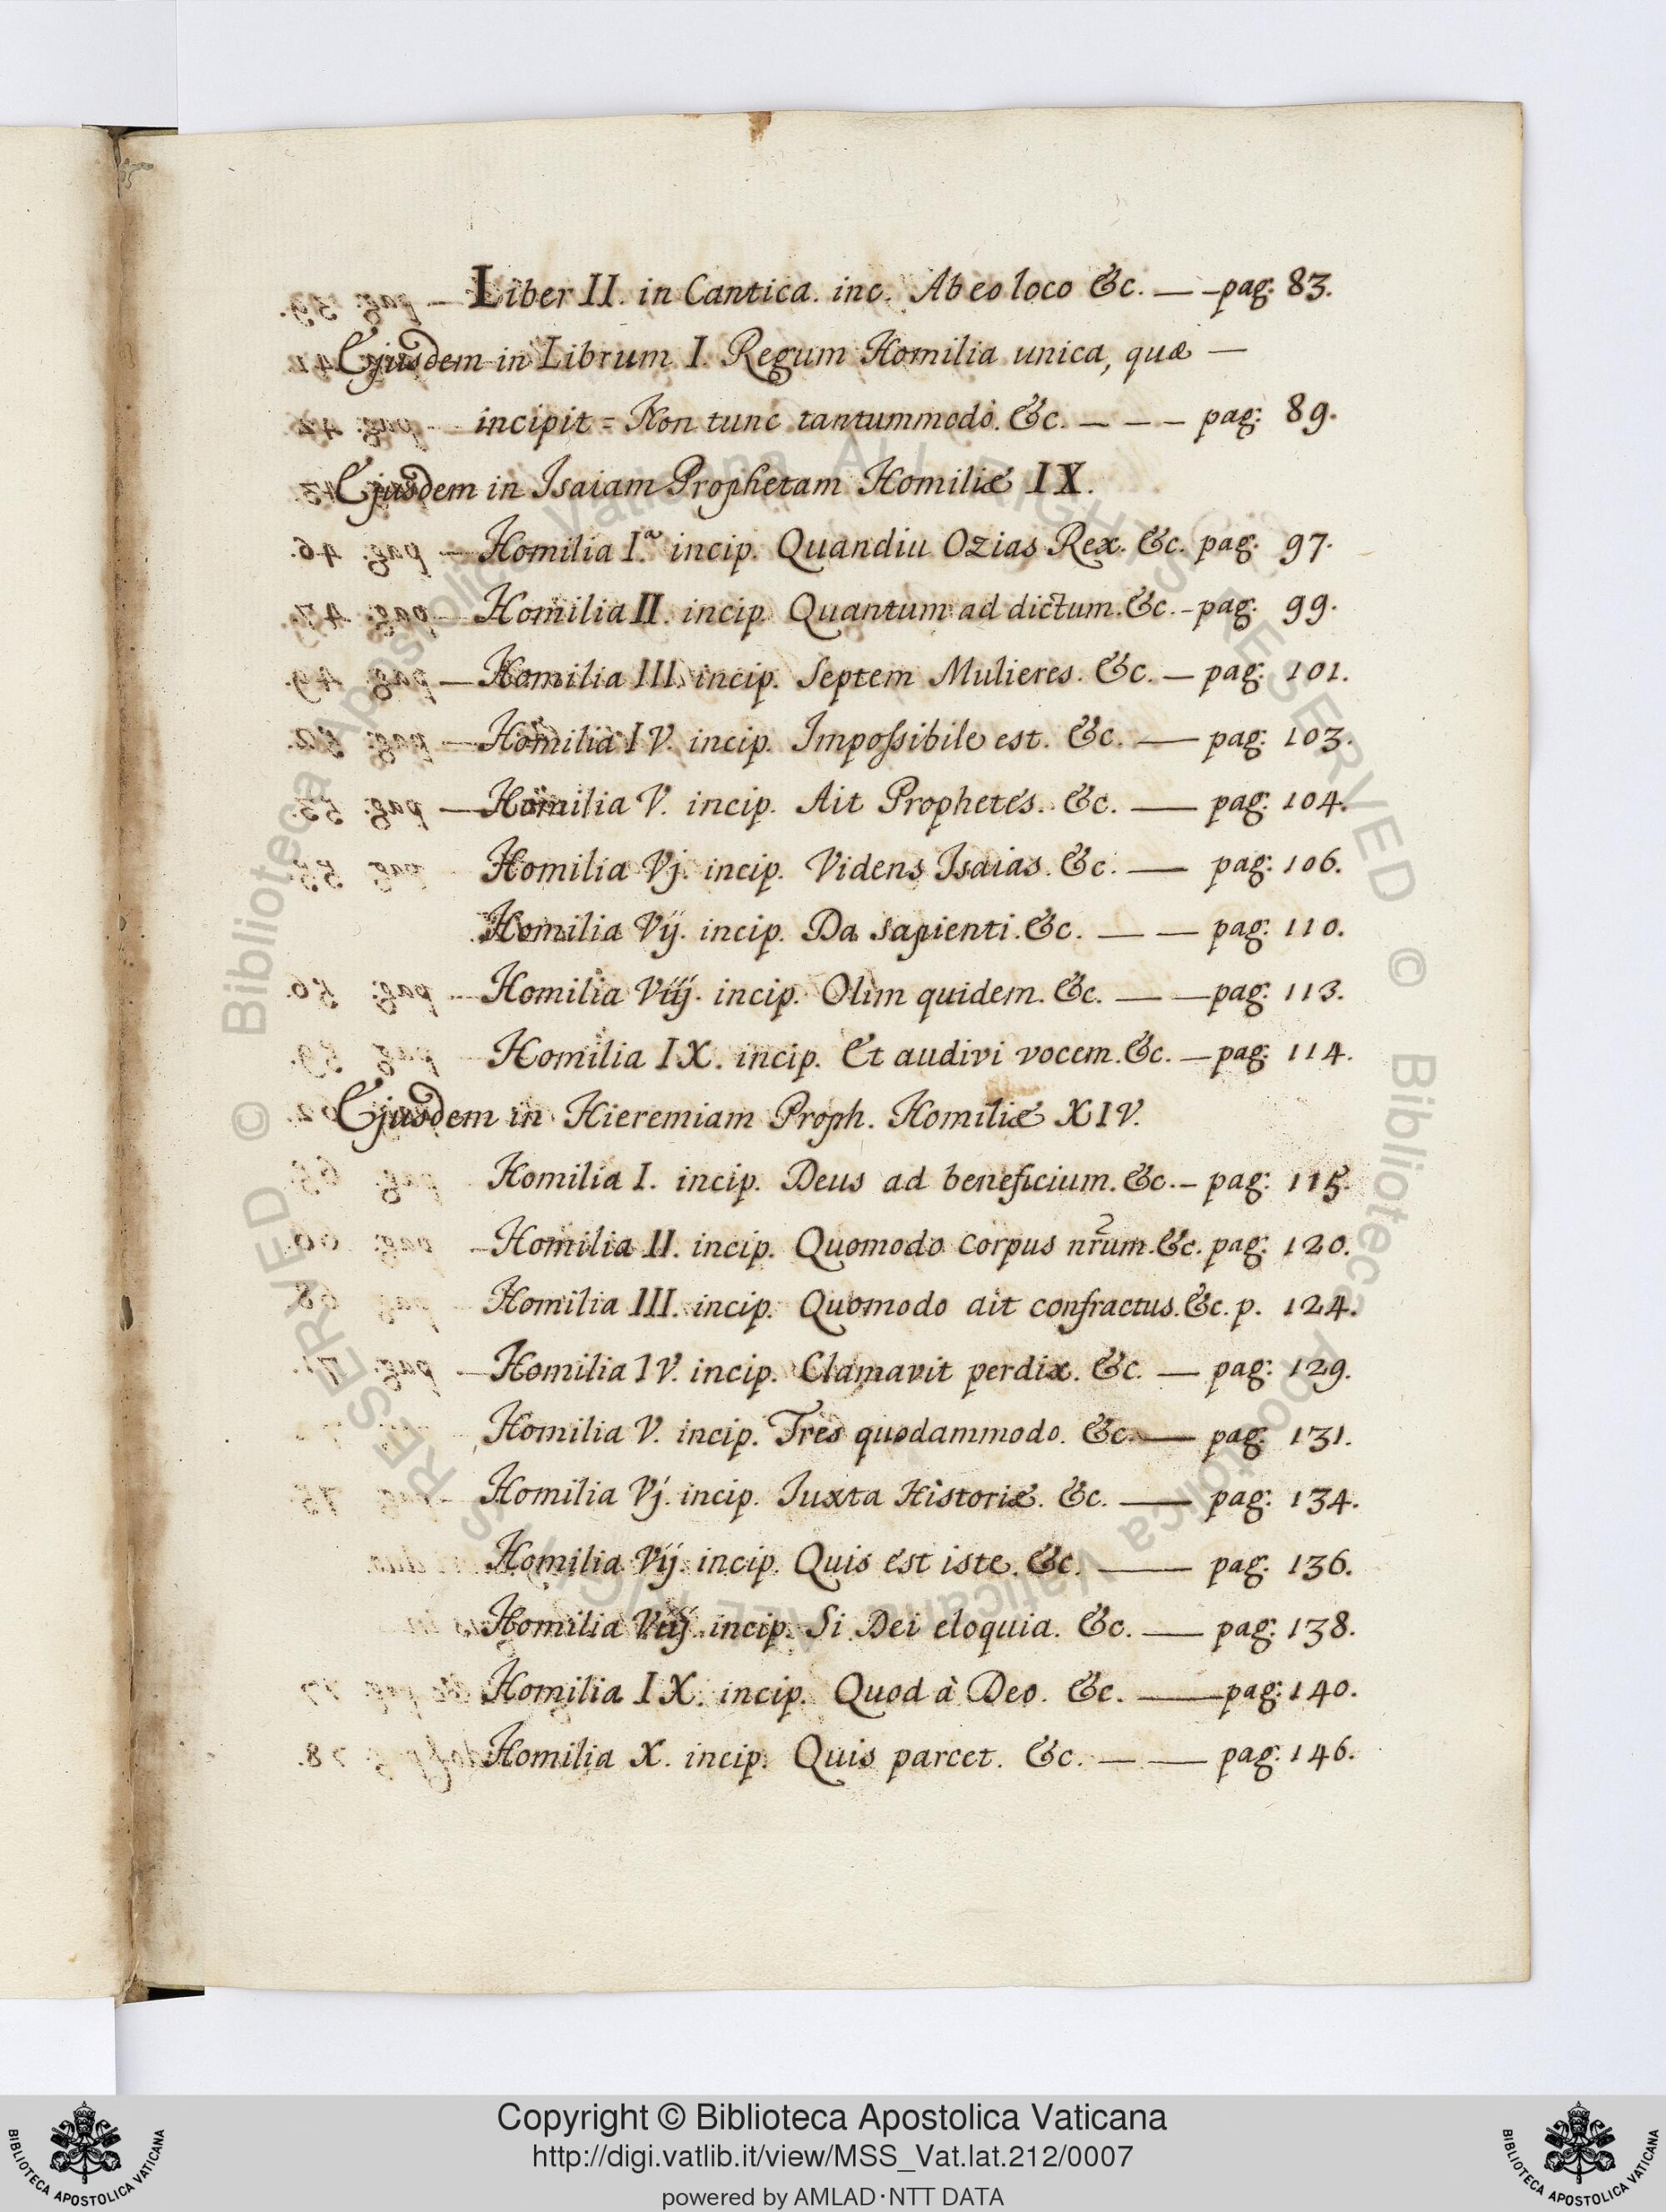 Liber II. in Cantica. inc. Ab eo loco &c. — — pag: 83.
Ejusdem in Librum I. Regum Homilia unica, quæ —
incipit = Non tunc tantummodò. &c. — — — pag: 89.
Ejusdem in Isaiam Prophetam Homiliæ IX.
Homilia I.ª incip. Quandiu Ozias Rex. &c. pag: 97.
Homilia II. incip. Quantum ad dictum. &c. - pag: 99.
Homilia III. incip. Septem Mulieres. &c. — pag: 101.
Homilia IV. incip. Impoſsibile est. &c. — pag: 103.
Homilia V. incip. Ait Prophetes. &c. — pag: 104.
Homilia Vj. incip. Videns Isaias. &c. — pag: 106.
Homilia Vij. incip. Da sapienti. &c. — — pag: 110.
Homilia Viij. incip. Olim quidem. &c. — — pag: 113.
Homilia IX. incip. Et audivi vocem. &c. — pag: 114.
Ejusdem in Hieremiam Proph. Homiliæ XIV.
Homilia I. incip. Deus ad beneficium. &c. - pag: 115.
Homilia II. incip. Quomodo corpus nr̃um. &c. pag: 120.
Homilia III. incip. Quomodo ait confractus. &c. p. 124.
Homilia IV. incip. Clamavit perdix. &c. — pag: 129.
Homilia V. incip. Tres quodammodo. &c. — pag: 131.
Homilia Vj. incip. Iuxta Historiæ. &c. — pag: 134.
Homilia Vij. incip. Quis est iste. &c. — pag: 136.
Homilia Viij. incip. Si Dei eloquia. &c. — pag: 138.
Homilia IX. incip. Quod à Deo. &c. — pag: 140.
Homilia X. incip. Quis parcet. &c. — — pag: 146.
© Biblioteca Apostolica Vaticana ALL RIGHTS RESERVED © Biblioteca Apostolica Vaticana ALL RIGHTS RESERVED
Copyright © Biblioteca Apostolica Vaticana
http://digi.vatlib.it/view/MSS_Vat.lat.212/0007
powered by AMLAD·NTT DATA
BIBLIOTECA APOSTOLICA VATICANA
BIBLIOTECA APOSTOLICA VATICANA